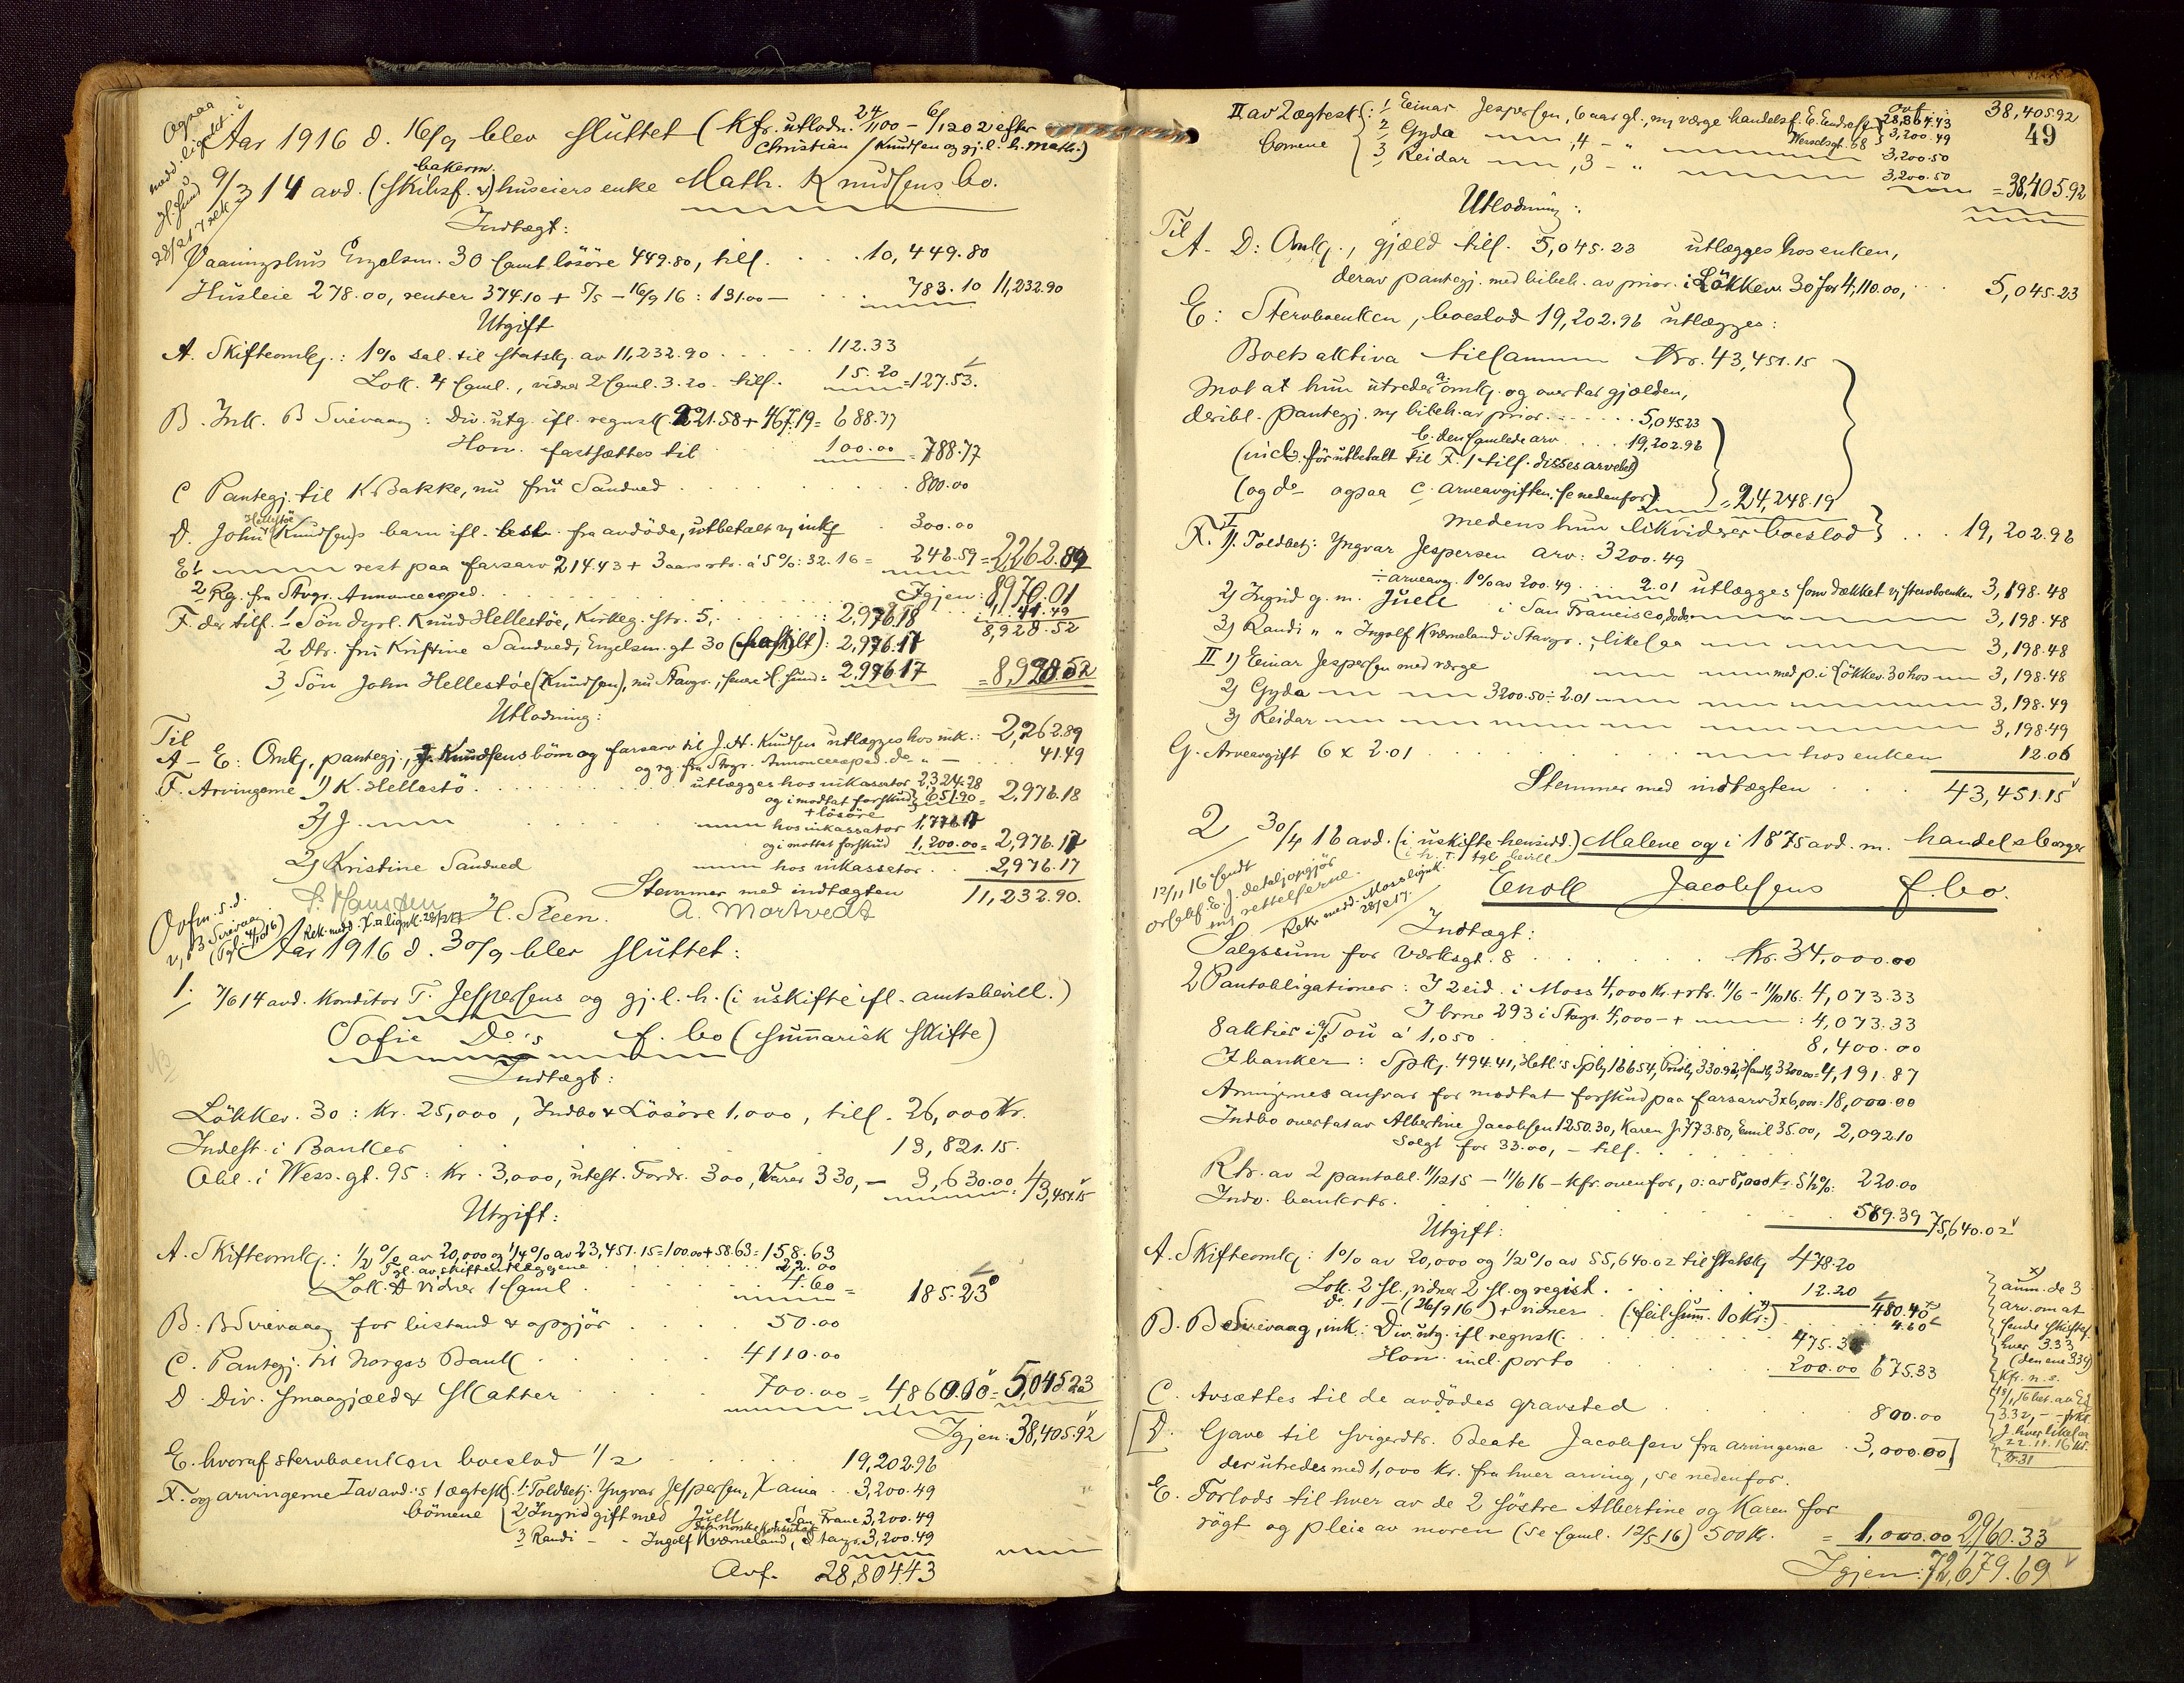 Ogsaa
medd. ligndir. i
H. Sund
28/2 17
Aar 1916 d. 16/9 blev sluttet (Kfr. utlodn. 24/1,00 - 6/1,202 efter
Christian Knudsen og gj. l. h. Math.)
bakerm.
9/3 14 avd. (skibsf. &) huseiers enke Math. Knudsens bo.
Indtægt:
Vaaningshus Engelsm. 30 samt lösöre 449.80, tils. . . . 10,449.80
Husleie 278.00, renter 374.10 + 5/5 - 16/9 16: 131.00 — . . . 783.10 11,232.90
Utgift
A. Skifteomk.: 1% sal. til statsk. av 11,232.90 . . . . . 112.33
Lok. 4 saml., vidner 2 saml. 3.20. tils. 15.20 = 127.53.
B. Ink. B Sirevaag: Div. utg. ifl. regnsk. 221.58 + 467.19 = 688.77
Hon. fastsættes til . . . 100.00 = 788.77
C Pantegj. til K Bakke, nu fru Sandved . . . . . . . 800.00
Hellestöe
D. John (Knudsen)s barn ifl. best. fra avdöde, utbetalt v/ ink. . 300.00
E 1 — rest paa farsarv 214.43 + 3 aars rtr. á 5%: 32.16 = 246.59 = 2,262.89
2 Rg. fra Stvgr. Annonceexped. . . . . . Igjen: 8970.01
÷ 41.49
F. der tilf. 1 Sön dyrl. Knud Hellestöe, Kirkeg. str. 5, . . . : 2,976.18 8,928.52
2 Dtr. fru Kristine Sandved, Engelsm. gt 30 (fraskilt): 2,976.17
3 Sön John Hellestöe (Knudsen), nu Stavgr., senere H. Sund: 2,976.17 = 8,928.52
Utlodning:
Til
A - E: Omk., pantegj., J. Knudsens börn og farsarv til J. H. Knudsen utlægges hos ink.: 2,262.89
og rg. fra Stvgr. Annonceexped. do " — . . . 41.49
F. Arvingerne 1) K. Hellestö . . . . . . utlægges hos inkassator 2,324.28
og i modtat forskud 651.90 = 2,976.18
+ lösöre
3) J. — . . . . — hos inkassator 1,776.17
og i mottat forskud 1,200.00 = 2,976.17
2) Kristine Sandved — hos inkassator . . 2,976.17
Stemmer med indtægten 11,232.90.
S. Hansten H. Steen. A. Mortvedt
Ovfn. s. d.
v/ B Sirevaag
Aar 1916 d. 30/9 blev sluttet:
1. 7/6 14 avd. Konditor T. Jespersens og gj. l. h. (i uskifte ifl. amtsbevill.)
Sofie Do's f. bo (summarisk skifte)
Indtægt:
Lökkev. 30: Kr. 25,000, Indbo & Lösöre 1,000, tils. 26,000 Kr.
Indest. i Banker . . . . . . . 13,821.15.
Obl. i Wess. gt. 95: Kr. 3,000, utest. Fordr. 300, Varer 330, — 3,630.00 43,451.15
Utgift:
A. Skifteomk.: 1/2% av 20,000 og 1/4% av 23,451.15 = 100.00 + 58.63 = 158.63
Tgl. av skifteutlæggene . . . . . . 22.00
Lok. & vidner 1 saml . . . 4.60 = 185.23
B. B Sirevaag for bistand & opgjör . . . . 50.00
C. Pantegj. til Norges Bank . . . . 4110.00
D. Div. smaagjæld & skatter . . . . 700.00 = 4860.00 = 5,045.23
Igjen: 38,405.92
E. hvoraf stervboenken boeslod 1/2 . . . . 19,202.96
F. og arvingerne I av avd.'s 1 ægtesk. 1. Toldbetj. Yngvar Jespersen, . . 3,200.49
börnene 2) Ingrid gift med Juell San Franc 3,200.49
3 Randi - " Ingolf Kværneland, Stavgr. 3,200.49
Ovf. 28,804.43
49
II av 2 ægtesk. : 1 Einar Jespersen, 6 aar gl., m/ værge handelsf. E. Endresen Ovf. 28,804.43 38,405.92
börnene 2 Gyda — , 4 - " Wesselsgt. 68 3,200.49
3 Reidar — , 3 - " 3,200.50
3,200.50
= 38,405.92
Utlodning:
Til
A - D: Omk., gjæld tils. 5,045.23 utlægges hos enken,
derav pantegj. med bibeh. av prior. i Lökkev. 30 for 4,110.00, . . 5,045.23
E: Stervboenken, boeslod 19,202.96 utlægges:
Boets aktiva tilsammen Kr. 43,451.15
mot at hun utreder a. omk. og overtar gjælden,
deribl. pantegj. m/ bibeh. av prior. . . . . . 5,045.23
b. den samlede arv . . . . 19,202.96
(incl. för utbetalt til F. 1 tils. disses arvelod)
(og do ogsaa c. arveavgiften, se nedenfor) = 24,248.19
medens hun likviderer boeslod . . . 19,202.96
F. I 1). Toldbetj. Yngvar Jespersen arv: 3200.49
÷ arveavg. 1% av 200.49 . . . . 2.01 utlægges som dækket v/ stervboenken 3,198.48
2) Ingrid g. m. Juell i San Francisco, — 3,198.48
3) Randi " " Ingolf Kværneland i Stavgr., likesaa — 3,198.48
II 1) Einar Jespersen med værge — med p. i Lökkev. 30 hos — 3,198.48
2) Gyda — — 3200.50 ÷ 2.01 — 3,198.49
3) Reidar — — 3,198.49
G. Arveavgift 6 x 2.01 . . . . — hos enken 12.06
Stemmer med indtægten . . . 43,451.15
2 30/4 16 avd. (i uskifte hensidd.) Malene og i 1875 avd. m. handelsborger
Enok Jacobsens f. bo.
12/11 16 sendt
m/ rettelserne.
Indtægt:
Salgssum for Værksgt. 8 . . . . . . Kr. 34,000.00
2 Pantobligationer: I 2 eid. i Moss 4,000 Kr. + rtr. 11/6 - 11/10 16: 4,073.33
I brne 293 i Stvgr. 4,000 - + — : 4,073.33
8 aktier i A/S Tou á 1,050 . . . . 8,400.00
I banker: Spk. 494.41, Hetl.'s Spb. 166.54, Privb. 330.92, Handb. 3200.00 = 4,191.87
Arvingernes ansvar for modtat forskud paa farsarv 3 x 6,000 = 18,000.00
Indbo overtat av Albertine Jacobsen 1250.30, Karen J. 773.80, Emil 35.00, 2,092.10
Solgt for 33.00, — tils. . . . .
Rtr. av 2 pantobl. 11/12 15 - 11/6 16 - kfr. ovenfor, o: av 8,000 Kr. 5 1/2%: 220.00
Indv. bankrtr. . . . . . 589.39 75,640.02
Utgift:
A. Skifteomk.: 1% av 20,000 og 1/2% av 55,640.02 til statsk. 478.20
Lok. 2 sl., vidner 2 sl. og regist. . . . 12.20 480.40
do. 1 — (26/9 16) + vidner . (feil summ. 10 Kr.) . . 4.60
B. B Sirevaag, ink.: Div. utg. ifl. regnsk. . . . 475.33
Hon. incl. porto . . . 200.00 675.33
C. Avsættes til de avdödes gravsted . . . 800.00
[D. Gave til svigerdtr. Beate Jacobsen fra arvingerne . 3,000.00]
der utredes med 1,000 Kr. fra hver arving, se nedenfor.
E. Forlods til hver av de 2 söstre Albertine og Karen for
rögt og pleie av moren (se saml. 12/5 16) 500 Kr. = 1,000.00 2960.33
Igjen: 72,679.69
x)
anm. de 3
arv. om at
sende skiftef.
hver 3.33
(den ene 3.34)
Kfr. n. s.